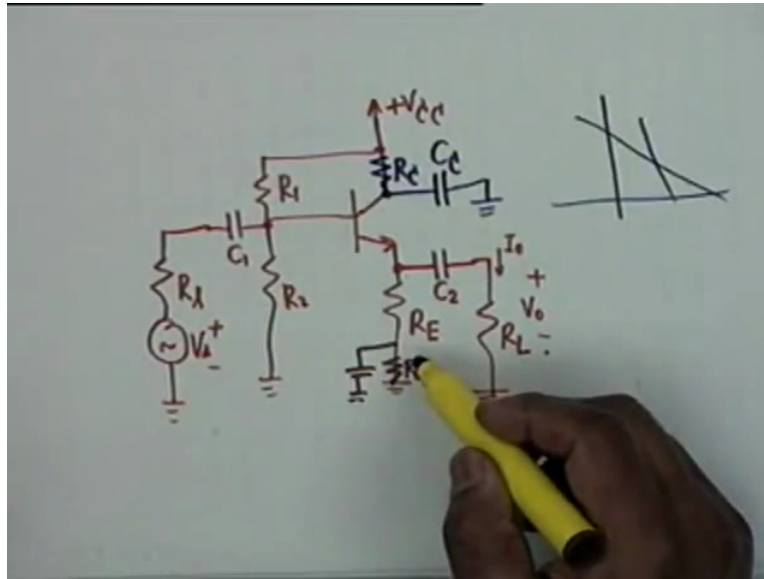 +VCC
RC CC
R1
C1
R2
Rs
Vs + -
C2
I0
+
V0
-
RE
RL
R
~